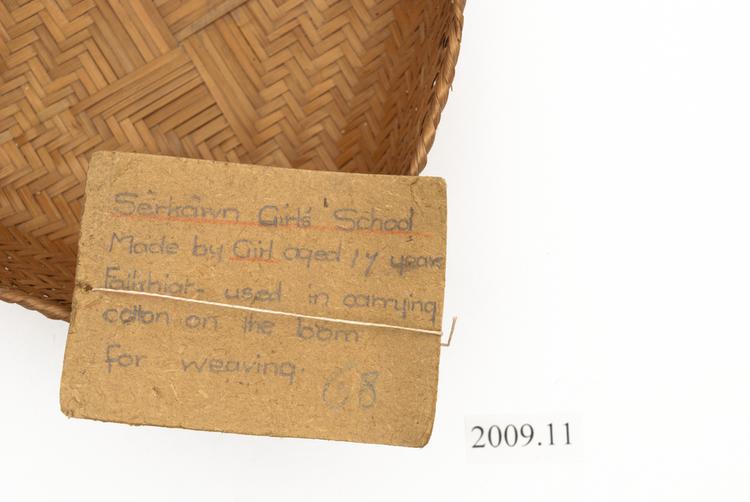 Sêrkâwn Girls' School
Made by Girl aged 17 years
Failkhiat- used in carrying
cotton on the loom
for weaving.
68
2009.11